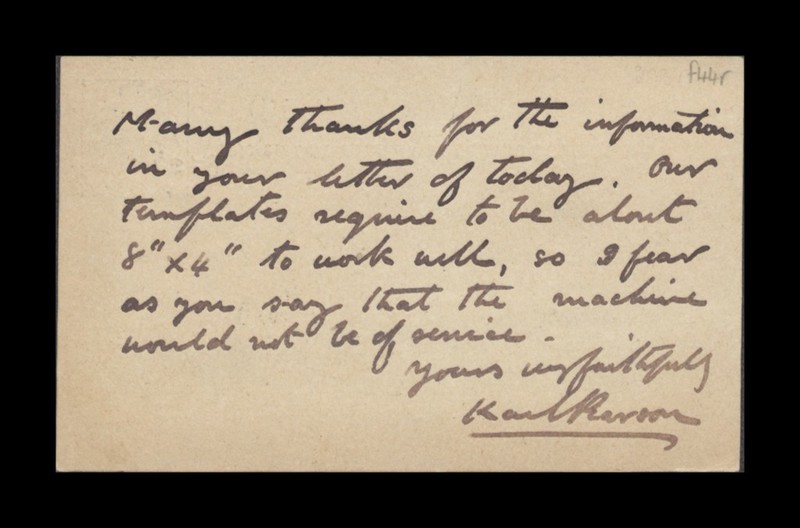 f44r
Many thanks for the information
in your letter of today. Our
templates require to be about
8" x 4" to work well, so I fear
as you say that the machine
would not be of service.
Yours very faithfully
Karl Pearson